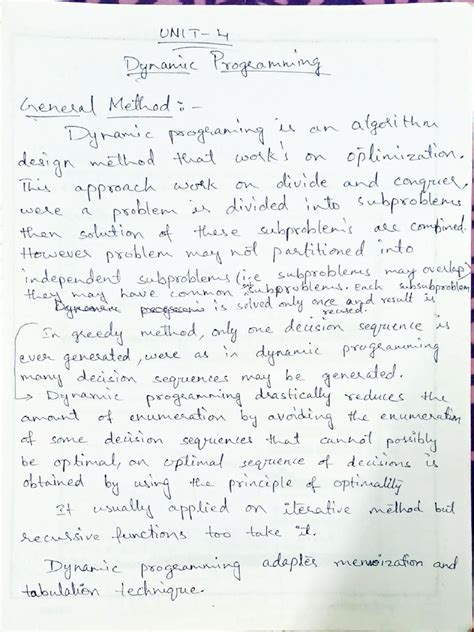 UNIT-4
Dynamic Programming
General Method :-
Dynamic programing is an algorithm
design method that work's on optimization.
This approach work on divide and conquer,
were a problem is divided into subproblems
then solution of these subproblem's are combined.
However problem may not partitioned into
independent subproblems (i.e subproblems may overlap)
they may have common subproblems. Each subsubproblem
is solved only once and result is
reused.
In greedy method, only one decision sequence is
ever generated, were as in dynamic programming
many decision sequences may be generated.
→ Dynamic programming drastically reduces the
amount of enumeration by avoiding the enumeration
of some decision sequences that cannot possibly
be optimal, an optimal sequence of decisions is
obtained by using the principle of optimality
It usually applied on iterative method but
recursive functions too take it.
Dynamic programming adaptes memoization and
tabulation technique.